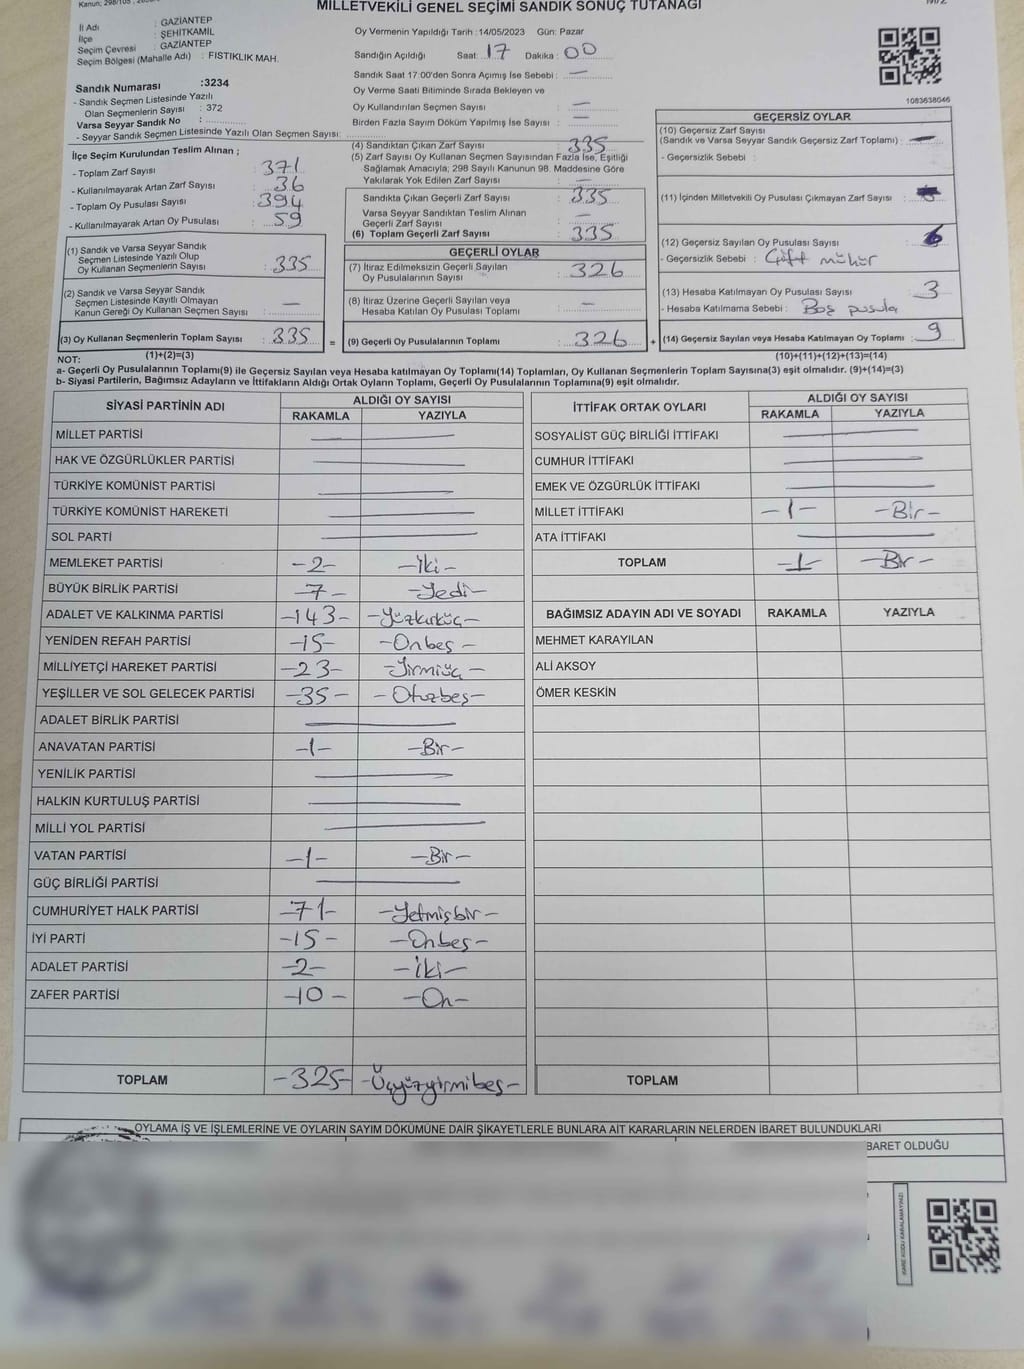 MİLLETVEKİLİ GENEL SEÇİMİ SANDIK SONUÇ TUTANAĞI
İl Adı : GAZİANTEP
İlçe : ŞEHİTKAMİL
Seçim Çevresi : GAZİANTEP
Seçim Bölgesi (Mahalle Adı) : FISTIKLIK MAH.
Sandık Numarası :3234
- Sandık Seçmen Listesinde Yazılı
Olan Seçmenlerin Sayısı : 372
Varsa Seyyar Sandık No :
- Seyyar Sandık Seçmen Listesinde Yazılı Olan Seçmen Sayısı:
Oy Vermenin Yapıldığı Tarih :14/05/2023 Gün: Pazar
Sandığın Açıldığı Saat: 17 Dakika: 00
Sandık Saat 17:00'den Sonra Açımış İse Sebebi : —
Oy Verme Saati Bitiminde Sırada Bekleyen ve
Oy Kullandırılan Seçmen Sayısı : —
Birden Fazla Sayım Döküm Yapılmış İse Sayısı : —
1083638046
İlçe Seçim Kurulundan Teslim Alınan ;
- Toplam Zarf Sayısı : 371
- Kullanılmayarak Artan Zarf Sayısı : 36
- Toplam Oy Pusulası Sayısı : 394
- Kullanılmayarak Artan Oy Pusulası : 59
(1) Sandık ve Varsa Seyyar Sandık
Seçmen Listesinde Yazılı Olup
Oy Kullanan Seçmenlerin Sayısı : 335
(2) Sandık ve Varsa Seyyar Sandık
Seçmen Listesinde Kayıtlı Olmayan
Kanun Gereği Oy Kullanan Seçmen Sayısı : —
(3) Oy Kullanan Seçmenlerin Toplam Sayısı : 335 =
(1)+(2)=(3)
(4) Sandıktan Çıkan Zarf Sayısı : 335
(5) Zarf Sayısı Oy Kullanan Seçmen Sayısından Fazla İse, Eşitliği
Sağlamak Amacıyla; 298 Sayılı Kanunun 98. Maddesine Göre
Yakılarak Yok Edilen Zarf Sayısı : —
Sandıkta Çıkan Geçerli Zarf Sayısı : 335
Varsa Seyyar Sandıktan Teslim Alınan
Geçerli Zarf Sayısı : —
(6) Toplam Geçerli Zarf Sayısı : 335
GEÇERLİ OYLAR
(7) İtiraz Edilmeksizin Geçerli Sayılan
Oy Pusulalarının Sayısı : 326
(8) İtiraz Üzerine Geçerli Sayılan veya
Hesaba Katılan Oy Pusulası Toplamı : —
(9) Geçerli Oy Pusulalarının Toplamı : 326 +
GEÇERSİZ OYLAR
(10) Geçersiz Zarf Sayısı
(Sandık ve Varsa Seyyar Sandık Geçersiz Zarf Toplamı) : —
- Geçersizlik Sebebi :
(11) İçinden Milletvekili Oy Pusulası Çıkmayan Zarf Sayısı :
(12) Geçersiz Sayılan Oy Pusulası Sayısı : 6
- Geçersizlik Sebebi : Çift mühür
(13) Hesaba Katılmayan Oy Pusulası Sayısı : 3
- Hesaba Katılmama Sebebi : Boş pusula
(14) Geçersiz Sayılan veya Hesaba Katılmayan Oy Toplamı : 9
(10)+(11)+(12)+(13)=(14)
NOT:
a- Geçerli Oy Pusulalarının Toplamı(9) ile Geçersiz Sayılan veya Hesaba katılmayan Oy Toplamı(14) Toplamları, Oy Kullanan Seçmenlerin Toplam Sayısına(3) eşit olmalıdır. (9)+(14)=(3)
b- Siyasi Partilerin, Bağımsız Adayların ve İttifakların Aldığı Ortak Oyların Toplamı, Geçerli Oy Pusulalarının Toplamına(9) eşit olmalıdır.
SİYASİ PARTİNİN ADI ALDIĞI OY SAYISI
RAKAMLA YAZIYLA
MİLLET PARTİSİ —
HAK VE ÖZGÜRLÜKLER PARTİSİ —
TÜRKİYE KOMÜNİST PARTİSİ —
TÜRKİYE KOMÜNİST HAREKETİ —
SOL PARTİ —
MEMLEKET PARTİSİ -2- -İki-
BÜYÜK BİRLİK PARTİSİ -7- -Yedi-
ADALET VE KALKINMA PARTİSİ -143- -Yüzkırküç-
YENİDEN REFAH PARTİSİ -15- -Onbeş-
MİLLİYETÇİ HAREKET PARTİSİ -23- -Yirmiüç-
YEŞİLLER VE SOL GELECEK PARTİSİ -35- -Otuzbeş-
ADALET BİRLİK PARTİSİ —
ANAVATAN PARTİSİ -1- -Bir-
YENİLİK PARTİSİ —
HALKIN KURTULUŞ PARTİSİ —
MİLLİ YOL PARTİSİ —
VATAN PARTİSİ -1- -Bir-
GÜÇ BİRLİĞİ PARTİSİ —
CUMHURİYET HALK PARTİSİ -71- -Yetmişbir-
İYİ PARTİ -15- -Onbeş-
ADALET PARTİSİ -2- -İki-
ZAFER PARTİSİ -10- -On-
TOPLAM -325- -Üçyüzyirmibeş-
İTTİFAK ORTAK OYLARI ALDIĞI OY SAYISI
RAKAMLA YAZIYLA
SOSYALİST GÜÇ BİRLİĞİ İTTİFAKI —
CUMHUR İTTİFAKI —
EMEK VE ÖZGÜRLÜK İTTİFAKI —
MİLLET İTTİFAKI -1- -Bir-
ATA İTTİFAKI —
TOPLAM -1- -Bir-
BAĞIMSIZ ADAYIN ADI VE SOYADI RAKAMLA YAZIYLA
MEHMET KARAYILAN
ALİ AKSOY
ÖMER KESKİN
TOPLAM
OYLAMA İŞ VE İŞLEMLERİNE VE OYLARIN SAYIM DÖKÜMÜNE DAİR ŞİKAYETLERLE BUNLARA AİT KARARLARIN NELERDEN İBARET BULUNDUKLARI
BARET OLDUĞU
KARE KODU KARALAMAYINIZ!